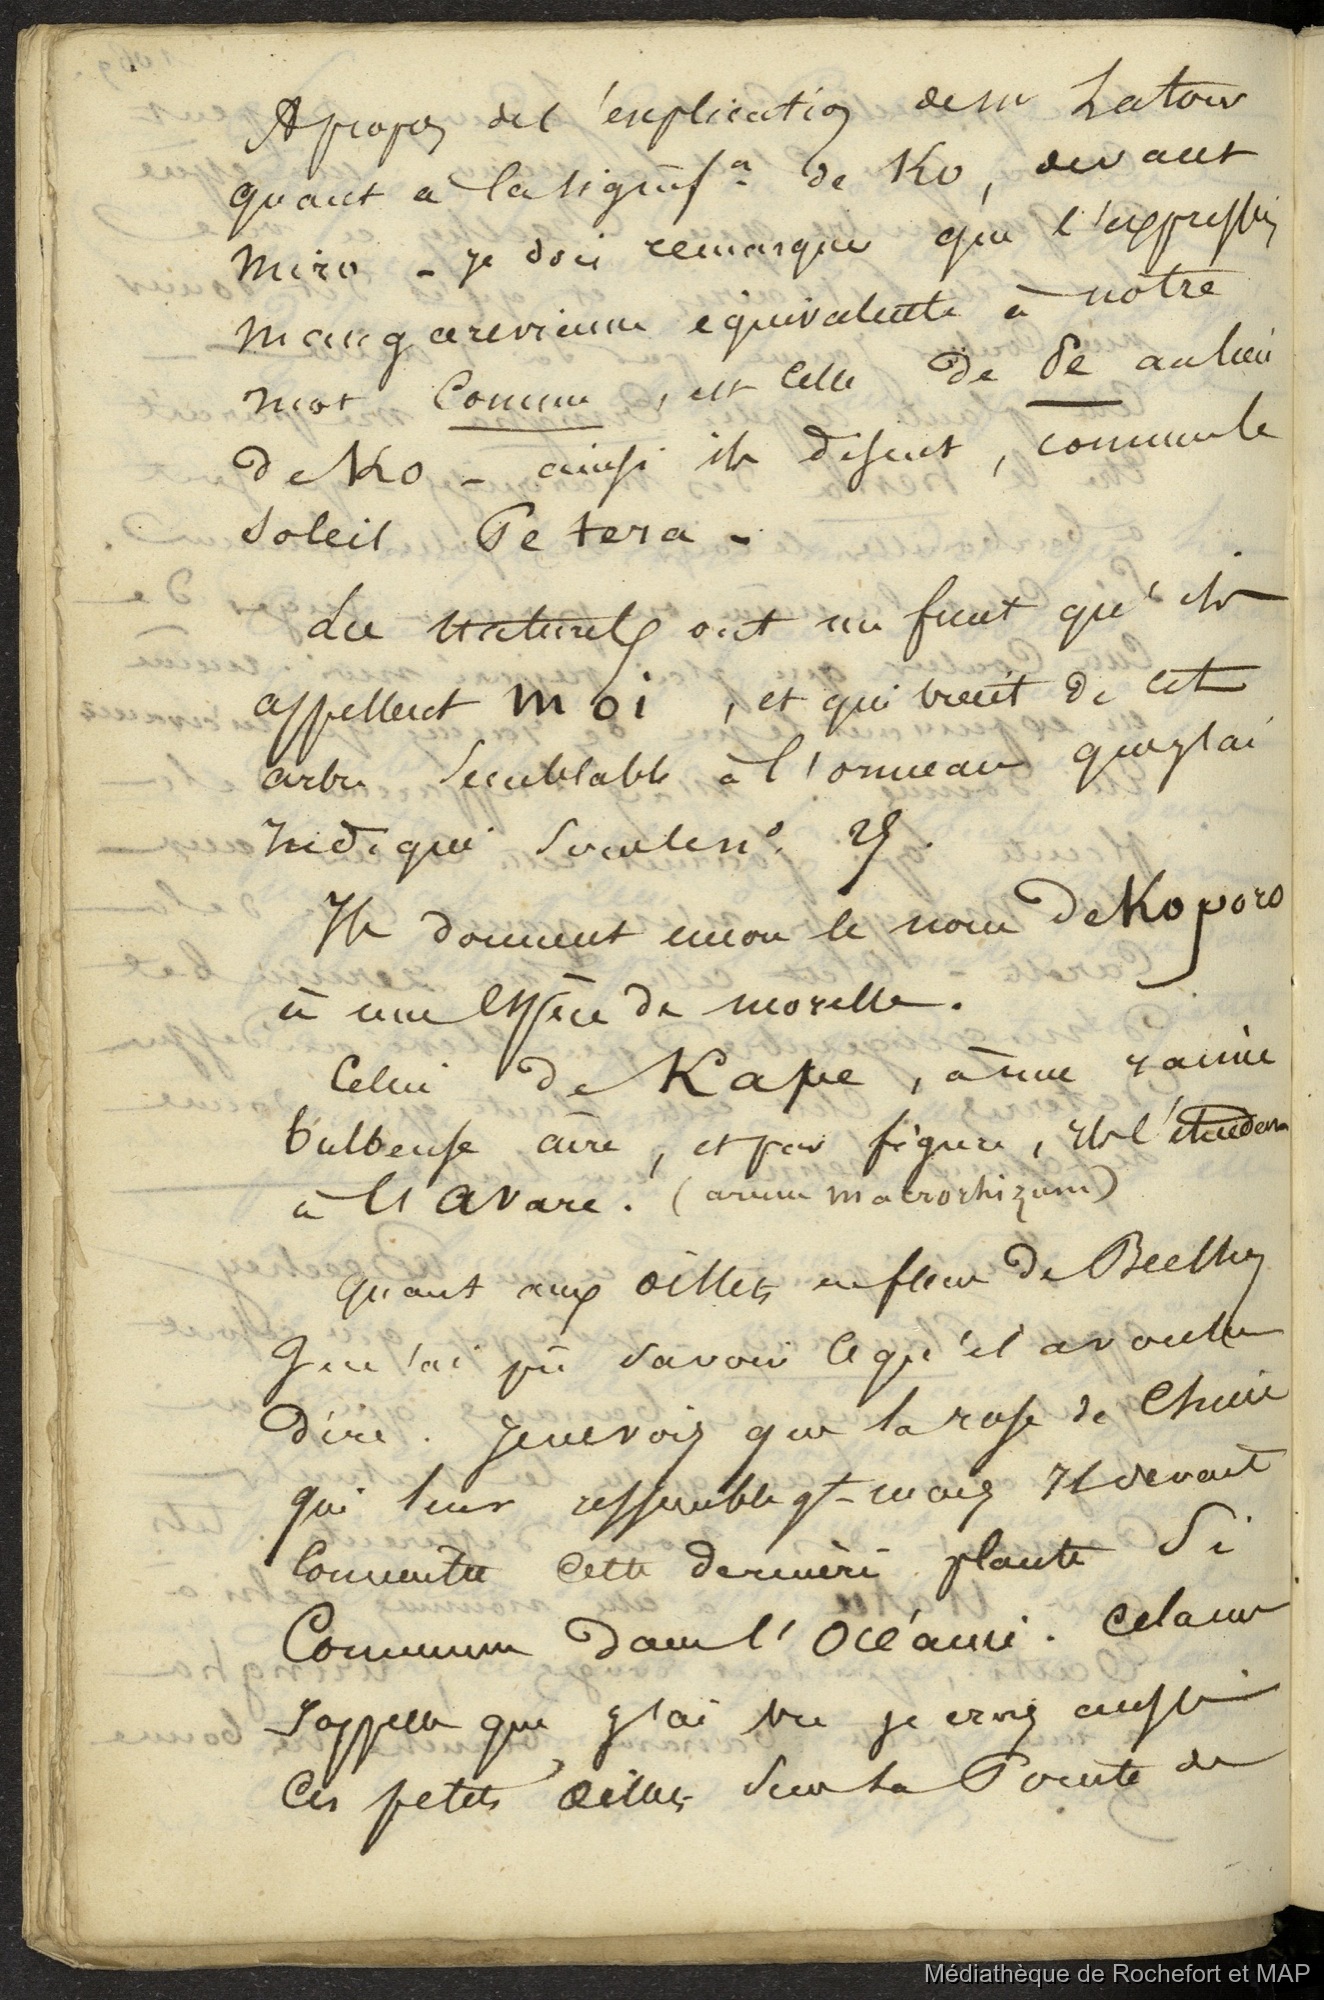 Apropos del'explication dem Latour
quant à la signifon de Ko, devant
miro - je dois remarquer que l'expression
mangarevienne equivalente à nôtre
mot Comme, est celle de Pe aulieu
de Ko - ainsi ils disent, comme le
soleil Pe tera -
Les naturels ont un fruit qu'ils
appellent moi, et qui vient de cet
arbre semblable à l'ormeau que j'ai
indiqué sous le no.
Ils donnent encore le nom de Koporo
à une espèce de morelle.
Celui de Kape, à une racine
bulbeuse acre, et par figure, ils l'étendent
à l'avare. (arum macrorhizum)
quant aux œillets en fleur de Beechey
Je n'ai pû savoir ce qu'il a voulu
dire. Je ne vois que la rose de Chine
qui leur ressemble - mais il devait
connaître cette dernière plante si
commune dans l'océanie. Cela me
rappelle que j'ai vu je crois aussi
ces petits œillets sur la Pointe de
Médiathèque de Rochefort et MAP